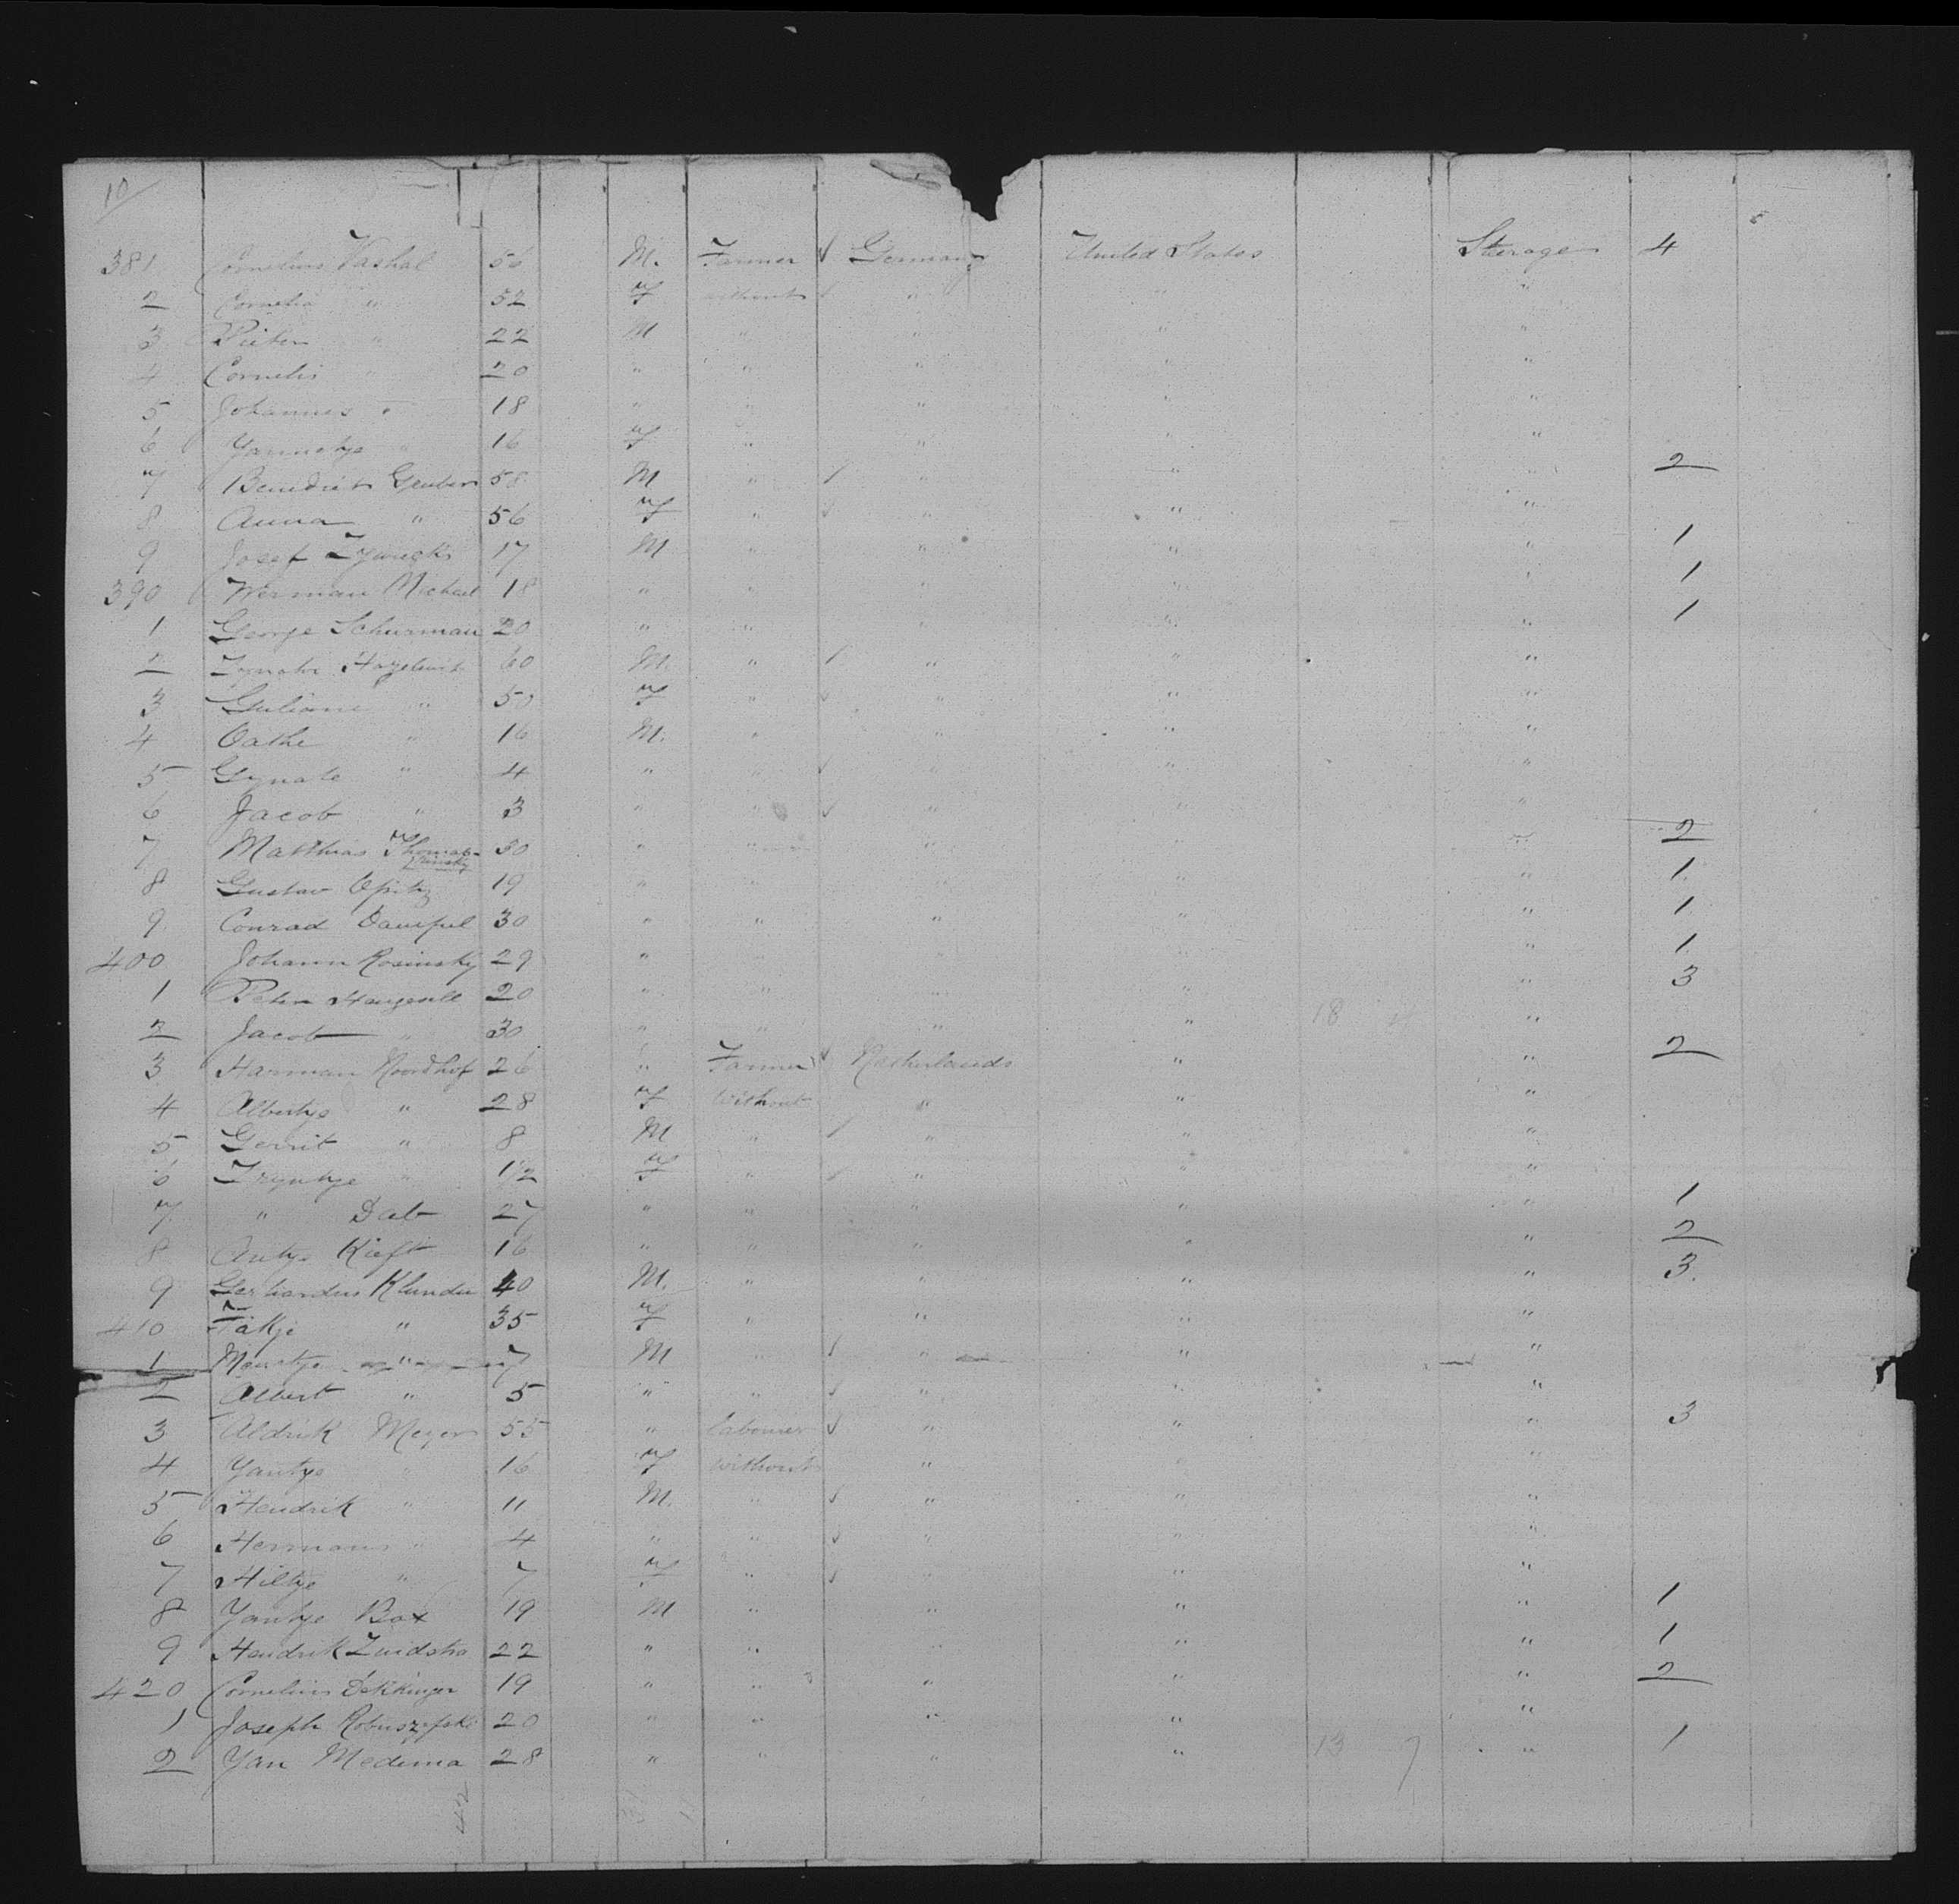 10
381 Cornelius Vashal 56 M. Farmer √ Germany United States Sterage 4
2 Cornelia " 52 f without √ " " "
3 Pieter " 22 M " " " "
4 Cornelis " 20 " " " " "
5 Johannes " 18 " " " " "
6 Yannetye " 16 f " " " "
7 Benedict Gruber 58 M " √ " " " 2
8 Anna " 56 f " √ " " "
9 Josef 17 M " " " " 1
390 Werman Michael 18 " " " " " 1
1 George Schurman 20 " " " " " 1
2 60 M. " √ " " "
3 Guliane " 50 f " √ " " "
4 " 16 M. " " " "
5 Gynate " 4 " " √ " " "
6 Jacob " 3 " " √ " " "
7 Matthias Thomas- 30 " " " " " 2
8 Gustav Opitz 19 " " " " " 1
9 Conrad 30 " " " " " 1
400 Johann Rosinsky 29 " " " " " 1
1 Peter 20 " " " " " 3
2 Jacob " 30 " " " " 18 4 "
3 Harman Noordhof 26 " Farmer √ Netherlands " " 2
4 Albertye " 28 f without " " "
5 Gerrit " 8 M " √ " " "
6 Tryntye " 1/2 f " √ " " "
7 " Dab 27 " " " " " 1
8 Antye Kieft 16 " " " " " 2
9 Gerhardus Klunder 40 M. " " " " 3.
410 Takje " 35 f " " " "
1 " 7 M " √ " " "
2 Albert " 5 " " √ " " "
3 Aldrick Meyer 55 " labourer √ " " " 3
4 Yantye " 16 f without " " "
5 Hendrik " 11 M. " √ " " "
6 Hermann " 4 " " √ " " "
7 Hiltye " 7 f " √ " " "
8 Yantye Bax 19 M " " " " 1
9 Hendrik Zuidstra 22 " " " " " 1
420 Cornelius Dekkinger 19 " " " " " 2
1 Joseph 20 " " " " "
2 Yan Medema 28 " " " " 13 7 " 1